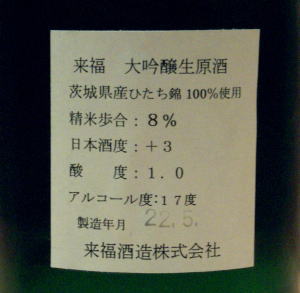 来福　大吟醸生原酒
茨城県産ひたち錦 100%使用
精米歩合：８%
日本酒度：＋３
酸　　度：１.０
アルコール度：１７度
製造年月 22.5.
来福酒造株式会社